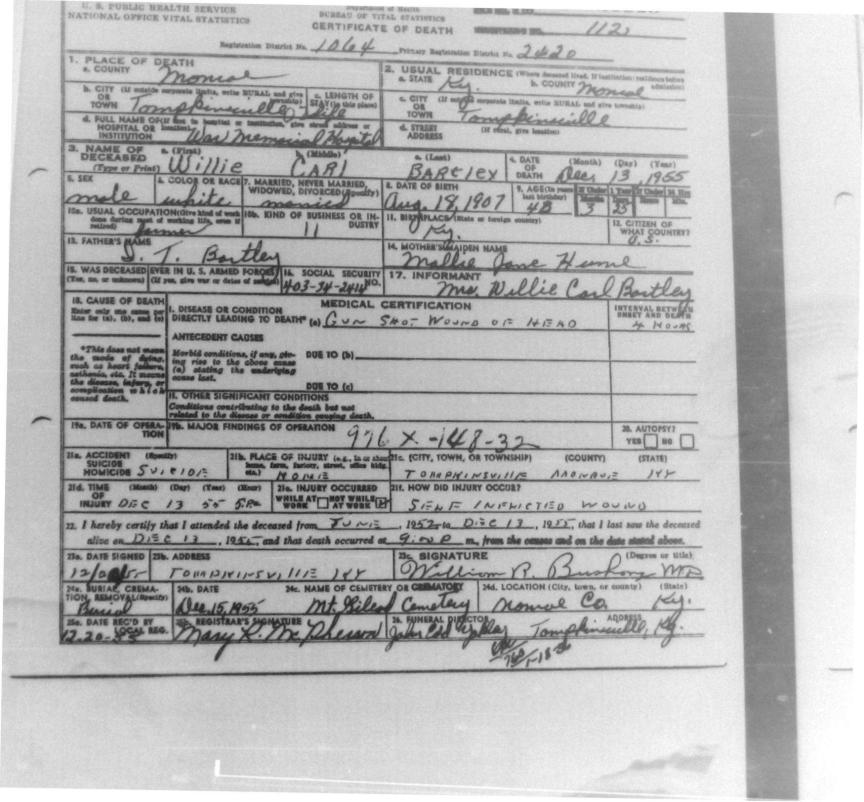 U. S. PUBLIC HEALTH SERVICE
NATIONAL OFFICE VITAL STATISTICS
Department of Health
BUREAU OF VITAL STATISTICS
CERTIFICATE OF DEATH
Registration District No. 1064 Primary Registration District No. 2420
1. PLACE OF DEATH
a. COUNTY Monroe
2. USUAL RESIDENCE (Where deceased lived. If institution: residence before admission)
a. STATE Ky. b. COUNTY Monroe
b. CITY (If outside corporate limits, write RURAL and give township) OR TOWN Tompkinsville
c. LENGTH OF STAY (in this place) Life
c. CITY (If outside corporate limits, write RURAL and give township) OR TOWN Tompkinsville
d. FULL NAME OF (If not in hospital or institution, give street address or location) HOSPITAL OR INSTITUTION War Memorial Hospital
d. STREET ADDRESS (If rural, give location)
3. NAME OF DECEASED (Type or Print)
a. (First) Willie
b. (Middle) Carl
c. (Last) Bartley
4. DATE OF DEATH (Month) (Day) (Year) Dec. 13, 1955
5. SEX male
6. COLOR OR RACE white
7. MARRIED, NEVER MARRIED, WIDOWED, DIVORCED (Specify) married
8. DATE OF BIRTH Aug. 18, 1907
9. AGE (In years last birthday) 48
If Under 1 Year Months 3 Days 25
If Under 24 Hrs. Hours Min.
10a. USUAL OCCUPATION (Give kind of work done during most of working life, even if retired) farmer
10b. KIND OF BUSINESS OR INDUSTRY 11
11. BIRTHPLACE (State or foreign country) Ky.
12. CITIZEN OF WHAT COUNTRY? U.S.
13. FATHER'S NAME S. T. Bartley
14. MOTHER'S MAIDEN NAME Mallie Jane Hume
15. WAS DECEASED EVER IN U. S. ARMED FORCES? (Yes, no, or unknown) (If yes, give war or dates of service)
16. SOCIAL SECURITY NO. 403-34-2414
17. INFORMANT Mrs. Willie Carl Bartley
18. CAUSE OF DEATH
Enter only one cause per line for (a), (b), and (c)
MEDICAL CERTIFICATION
INTERVAL BETWEEN ONSET AND DEATH
I. DISEASE OR CONDITION DIRECTLY LEADING TO DEATH* (a) GUN SHOT WOUND OF HEAD 4 HOURS
ANTECEDENT CAUSES
*This does not mean the mode of dying, such as heart failure, asthenia, etc. It means the disease, injury, or complication which caused death.
Morbid conditions, if any, giving rise to the above cause (a) stating the underlying cause last.
DUE TO (b)
DUE TO (c)
II. OTHER SIGNIFICANT CONDITIONS
Conditions contributing to the death but not related to the disease or condition causing death.
19a. DATE OF OPERATION
19b. MAJOR FINDINGS OF OPERATION
976 X -148-32
20. AUTOPSY?
YES NO
21a. ACCIDENT SUICIDE HOMICIDE (Specify) SUICIDE
21b. PLACE OF INJURY (e.g., in or about home, farm, factory, street, office bldg. etc.) HOME
21c. (CITY, TOWN, OR TOWNSHIP) (COUNTY) (STATE)
TOMPKINSVILLE MONROE KY
21d. TIME OF INJURY (Month) (Day) (Year) (Hour) DEC 13 55 5 PM
21e. INJURY OCCURRED WHILE AT WORK NOT WHILE AT WORK
21f. HOW DID INJURY OCCUR?
SELF INFLICTED WOUND
22. I hereby certify that I attended the deceased from JUNE, 1952, to DEC 13, 1955, that I last saw the deceased
alive on DEC 13, 1955, and that death occurred at 9:00 P m., from the causes and on the date stated above.
23a. DATE SIGNED
23b. ADDRESS TOMPKINSVILLE KY
23c. SIGNATURE (Degree or title) William R. Bushong MD
24a. BURIAL, CREMATION, REMOVAL (Specify) Burial
24b. DATE Dec 15, 1955
24c. NAME OF CEMETERY OR CREMATORY Mt. Gilead Cemetery
24d. LOCATION (City, town, or county) (State) Monroe Co Ky.
25a. DATE REC'D BY LOCAL REG. 12-20-55
25b. REGISTRAR'S SIGNATURE Mary K. McPherson
26. FUNERAL DIRECTOR ADDRESS Tompkinsville, Ky.